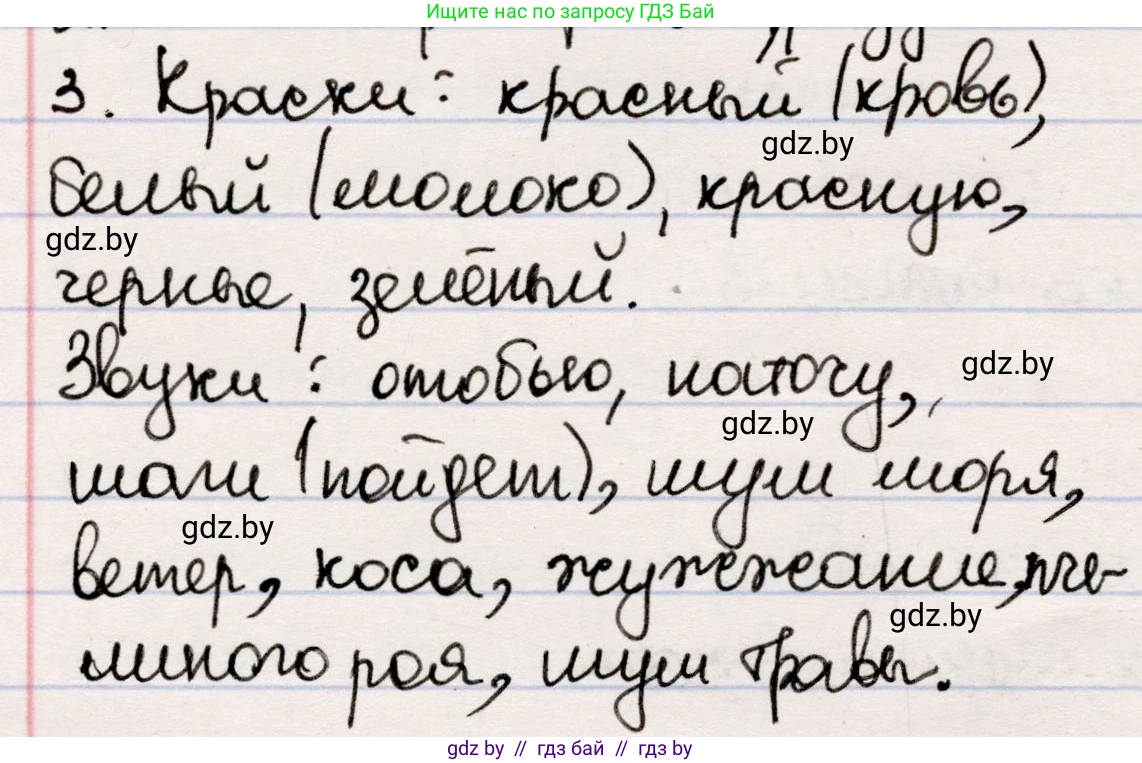 Ищите нас по запросу ГДЗ Бай
3. Краски: красный (кровь),
gdz.by
белый (молоко), красную,
gdz.by
черные, зелёный.
Звуки: отобью, наточу,
gdz.by
gdz.by
шаги (пойдет), шум моря,
gdz.by
ветер, коса, жужжание, пче-
gdz.by
линого роя, шум травы.
gdz by // гдз бай // гдз by